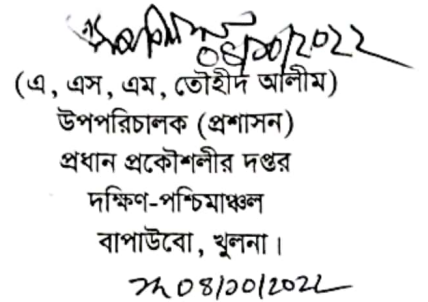 ০৪/১০/২০২২
(এ, এস, এম, তৌহীদ আলীম)
উপপরিচালক (প্রশাসন)
প্রধান প্রকৌশলীর দপ্তর
দক্ষিণ-পশ্চিমাঞ্চল
বাপাউবো, খুলনা।
০৪/১০/২০২২